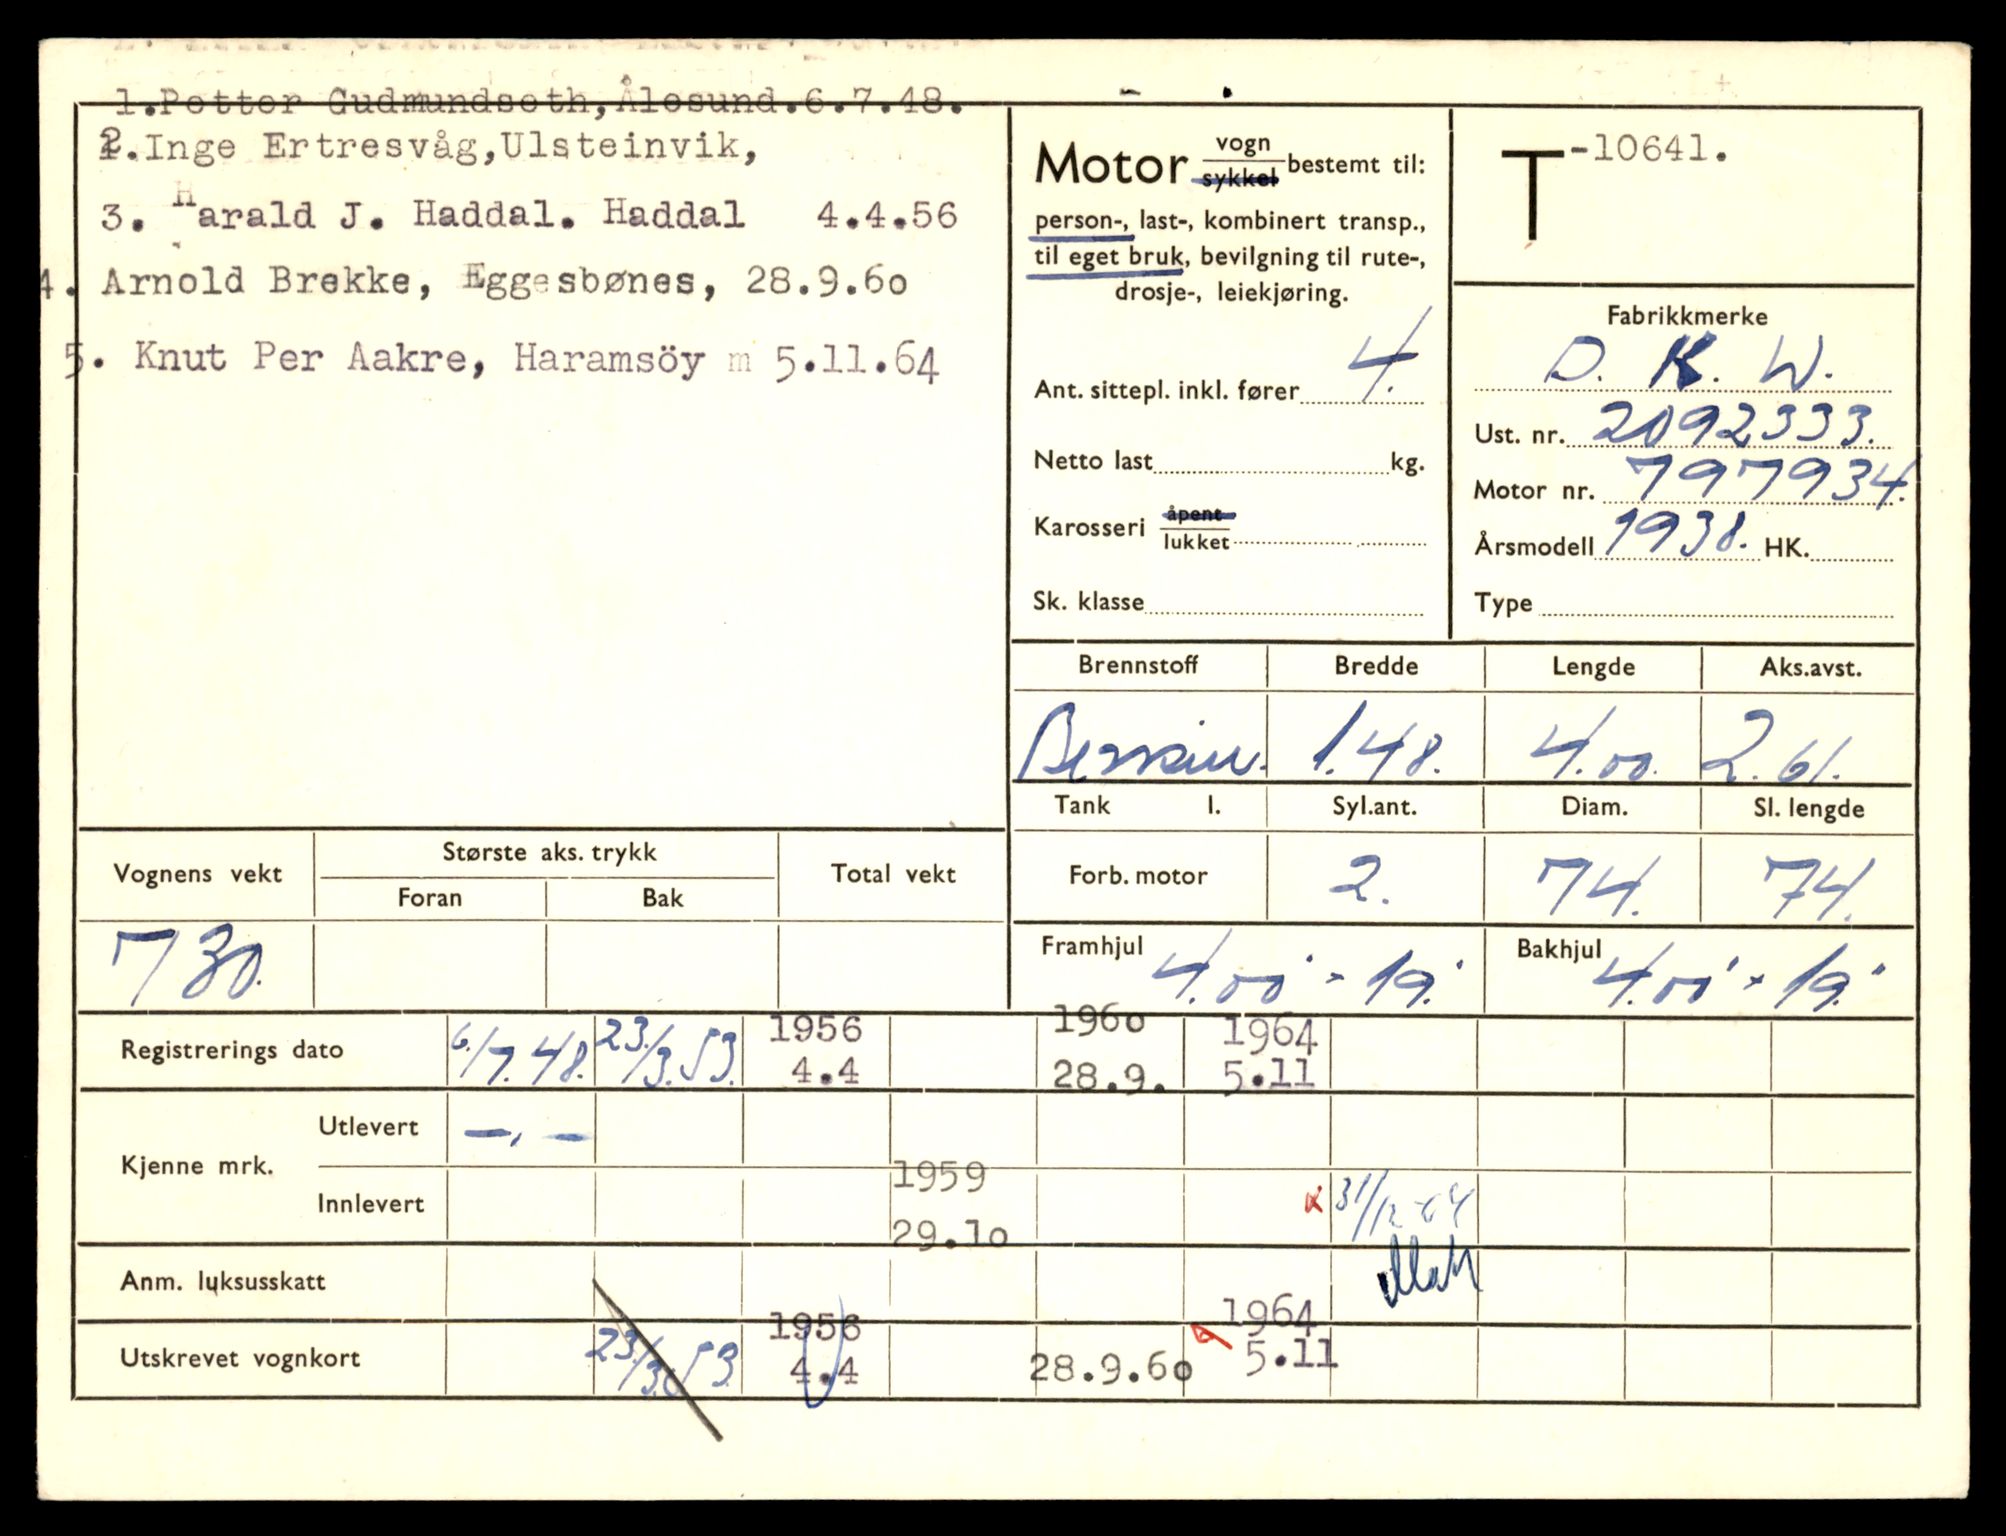 1.Petter Gudmundseth,Ålesund.6.7.48.
2.Inge Ertresvåg,Ulsteinvik,
3. Harald J. Haddal. Haddal 4.4.56
4. Arnold Brekke, Eggesbønes, 28.9.6o
5. Knut Per Aakre, Haramsöy m 5.11.64
Motor vogn sykkel bestemt til:
person-, last-, kombinert transp.,
til eget bruk, bevilgning til rute-,
drosje-, leiekjøring.
Ant. sittepl. inkl. fører 4.
Netto last kg.
Karosseri åpent lukket
Sk. klasse
T-10641.
Fabrikkmerke
D. K. W.
Ust. nr. 2092333.
Motor nr. 797934.
Årsmodell 1938. HK.
Type
Brennstoff Bredde Lengde Aks.avst.
Bensin. 1.48. 4.00. 2.61.
Tank l. Syl.ant. Diam. Sl. lengde
Forb. motor 2. 74. 74.
Framhjul 4.00" × 19." Bakhjul 4.00" × 19."
Vognens vekt Største aks. trykk Total vekt
Foran Bak
730.
Registrerings dato 6./7.48. 23./3.53. 1956 4.4 196o 28.9. 1964 5.11
Kjenne mrk. Utlevert —,—
Innlevert 1959 29.1o x 31/12-64
Anm. luksusskatt
Utskrevet vognkort 23./3.53. 1956 4.4 28.9.6o 1964 5.11